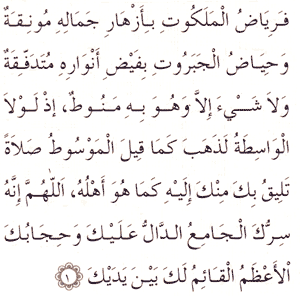 فَرِيَاضُ الْمَلَكُوتِ بِأَزْهَارِ جَمَالِهِ مُونِقَةٌ
وَحِيَاضُ الْجَبَرُوتِ بِفَيْضِ أَنْوَارِهِ مُتَدَفِّقَةٌ
وَلاَ شَيْءَ إِلاَّ وَهُوَ بِهِ مَنُوطٌ، إِذْ لَوْلاَ
الْوَاسِطَةُ لَذَهَبَ كَمَا قِيلَ الْمَوْسُوطُ صَلاَةً
تَلِيقُ بِكَ مِنْكَ إِلَيْهِ كَمَا هُوَ أَهْلُهُ، اَللّٰهُمَّ إِنَّهُ
سِرُّكَ الْجَامِعُ الدَّالُّ عَلَيْكَ وَحِجَابُكَ
الْأَعْظَمُ الْقَائِمُ لَكَ بَيْنَ يَدَيْكَ ١